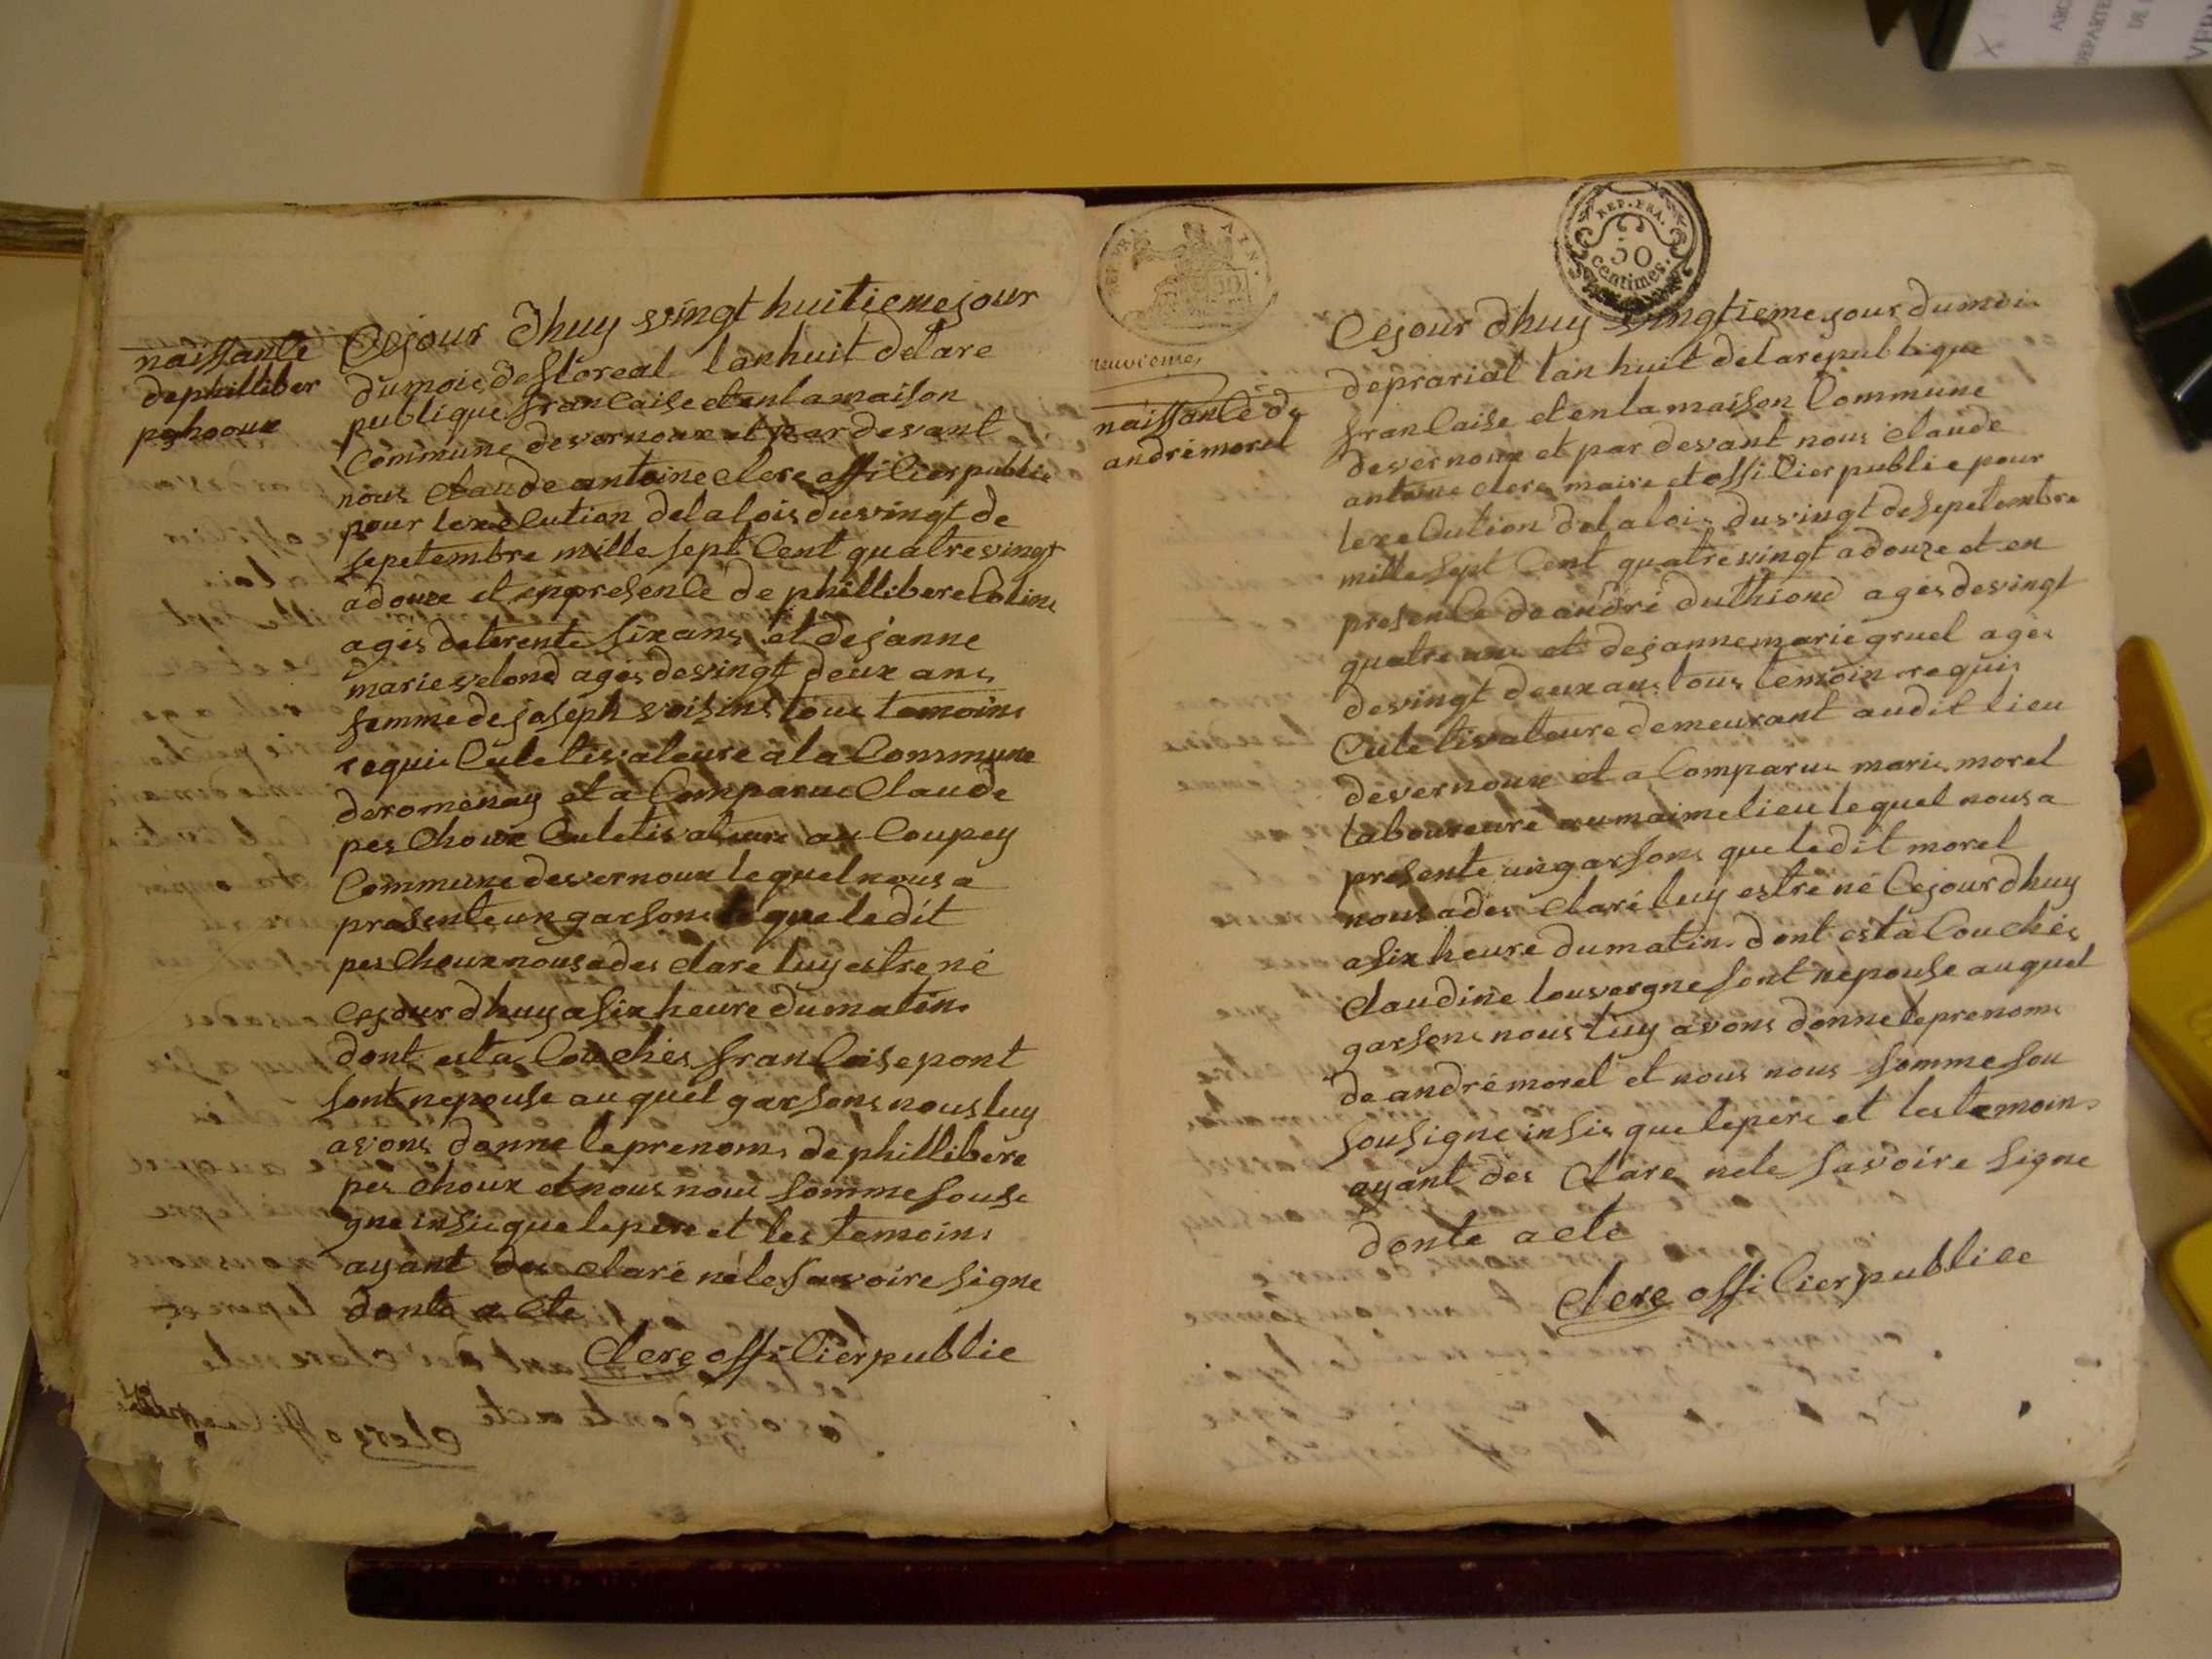 naissance
de philliber
peshooux
Cejour Dhuy vingt huitiemejour
dumois de floreal lan huit delare
publique francaise et en lamaison
Commune devernoux et par devant
nous claude antoine clerc officier public
pour lexecution delalois duvingt de
sepetembre mille sept Cent quatrevingt
adouze et enpresence de phillibere Colin
ages deterente six ans et dejanne
marie velond ages devingt deux ans
femme de joseph voisins tous temoins
requis Culetivateure ala Commune
deromenay et a Comparue Claude
pes Choux Culetivateure au Coupey
Commune devernoux lequel nous a
presente un garsons que ledit
pes Choux nous a des clare luy estre né
cejour dhuy a six heure dumatin
dont esta Couchés francoise pont
sont nepouse auquel garsons nous luy
avons donne leprenoms de phillibere
pes choux et nous nous somme sousi
gne insie que lepere et les temoins
ayant des claré nele savoire signe
donte acte
Clerc officier public
REP. FRA.
50
centimes.
neuvieme
naissance de
andré morel
Cejour dhuy vingtieme jour dumois
deprarial lan huit delarepublique
francaise et en lamaison Commune
devernoux et par devant nous claude
antoine clerc maire et officier public pour
lexecution delalois duvingt desepetembre
mille sept Cent quatrevingt adouze et en
presence de andré duthiond ages devingt
quatre ans et dejanne marie gruel ages
devingt deux ans tous temoin requis
Culetivateure demeurant audit lieu
devernoux et a Comparue marie morel
laboureure aumaime lieu lequel nous a
presente un garsons que ledit morel
nous a des claré luy estre né Cejour dhuy
a six heure dumatin dont esta Couchés
Claudine louvergne sont nepouse auquel
garsons nous luy avons donne leprenoms
de andré morel et nous nous somme sou
sousigne insie que lepere et les temoins
ayant des clare nele savoire signe
donte acte
Clerc officier publice